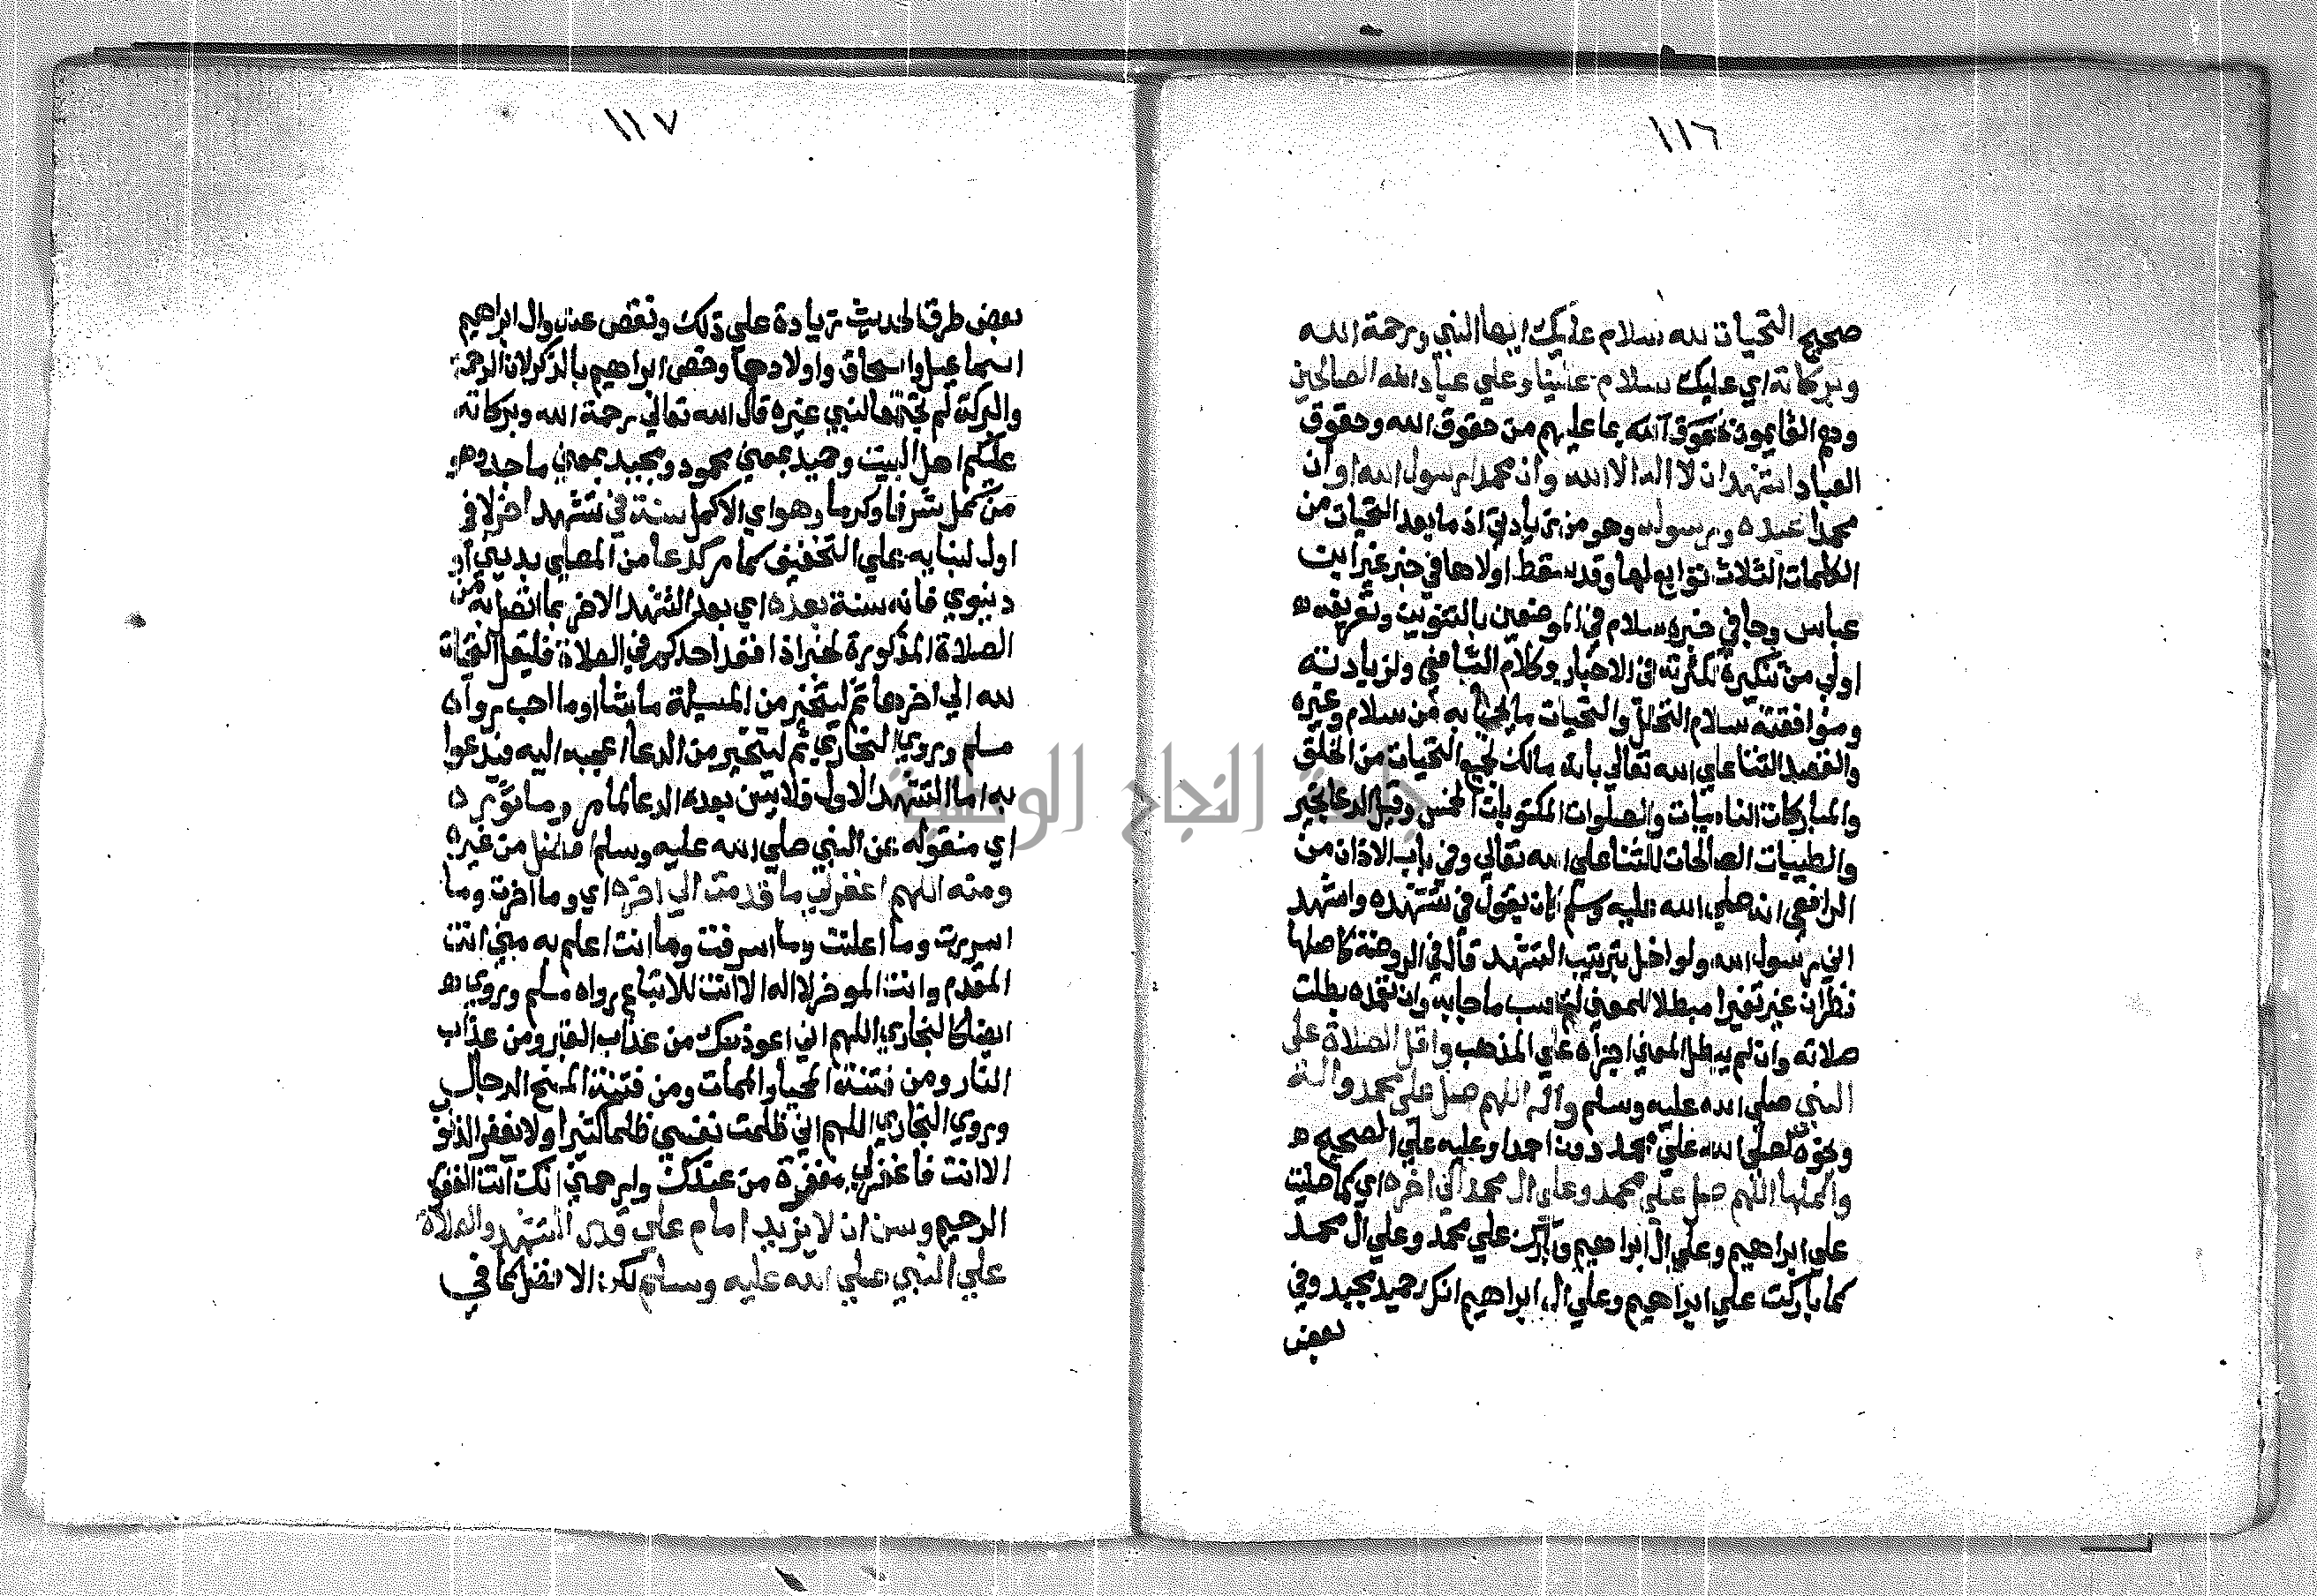 ١١٦
صحيح التحيات لله سلام عليك ايها النبي ورحمة الله
وبركاته اي عليك سلام علينا وعلي عباد الله الصالحين
وهم القايمون بحقوق الله بما عليهم من حقوق الله وحقوق
العباد اشهد ان لا اله الا الله وان محمدا رسول الله او ان
محمدا عبده ورسوله وهو من زيادتي اذ ما بعد التحيات من
الكلمات الثلاث توابع لها وقد سقط اولاها في خبر غير ابن
عباس وجا في خبره سلام في الموضعين بالتنوين وتعريفه
اولي من تنكيره لكثرته في الاخبار وكلام الشافعي ولزيادته
وموافقته سلام التحلل والتحيات ما يحيا به من سلام وغيره
والقصد الثنا علي الله تعالي بانه مالك لجميع التحيات من الخلق
والمباركات الناميات والصلوات المكتوبات الخمس وقيل الدعا بخير
والطيبات الصالحات للثنا علي الله تعالي وفي باب الاذان من
الرافعي انه صلي الله عليه وسلم كان يقول في تشهده واشهد
اني رسول الله ولو اخل بترتيب التشهد قال في الروضة كاصلها
نظر ان غير تغيرا مبطلا للمعني لم يحسب ما جا به وان تعمده بطلت
صلاته وان لم يبطل المعني اجزاه علي المذهب واقل الصلاة علي
النبي صلي الله عليه وسلم واله اللهم صل علي محمد واله
ونحوه كصلي الله علي محمد دون احمد او عليه علي الصحيح
واكملها اللهم صل علي محمد وعلي ال محمد الي اخره اي كما صليت
علي ابراهيم وعلي ال ابراهيم وبارك علي محمد وعلي ال محمد
كما باركت علي ابراهيم وعلي ال ابراهيم انك حميد مجيد وفي
بعض
١١٧
بعض طرق الحديث زيادة علي ذلك ونقص عنه وال ابراهيم
اسماعيل واسحاق واولادهما وخص ابراهيم بالذكر لان الرحمة
والبركة لم تجتمعا لنبي غيره قال الله تعالي رحمة الله وبركاته
عليكم اهل البيت وحميد بمعني محمود ومجيد بمعني ماجد وهو
من كمل شرفا وكرما وهو اي الاكمل سنة في تشهد اخر لا في
اول لبنايه علي التخفيف كما مر كدعا من المصلي بديني او
دنيوي فانه سنة بعده اي بعد التشهد الاخر بما اتصل به من
الصلاة المذكورة لخبر اذا قعد احدكم في الصلاة فليقل التحيات
لله الي اخرها ثم ليتخير من المسيلة ما شا او ما احب رواه
مسلم وروي البخاري ثم ليتخير من الدعا اعجبه اليه فيدعوا
به اما التشهد الاول فلا يسن بعده الدعا لما مر وماثوره
اي منقوله عن النبي صلي الله عليه وسلم افضل من غيره
ومنه اللهم اغفر لي ما قدمت الي اخره اي وما اخرت وما
اسررت وما اعلنت وما اسرفت وما انت اعلم به مني انت
المقدم وانت الموخر لا اله الا انت للاتباع رواه مسلم وروي
ايضا كالبخاري اللهم اني اعوذ بك من عذاب القبر ومن عذاب
النار ومن فتنة المحيا والممات ومن فتنة المسيح الدجال
وروي البخاري اللهم اني ظلمت نفسي ظلما كثيرا ولا يغفر الذنوب
الا انت فاغفر لي مغفرة من عندك وارحمني انك انت الغفور
الرحيم وسن ان لا يزيد امام علي قدر التشهد والصلاة
علي النبي صلي الله عليه وسلم لكن الافضل كما في
جامعة النجاح الوطنية